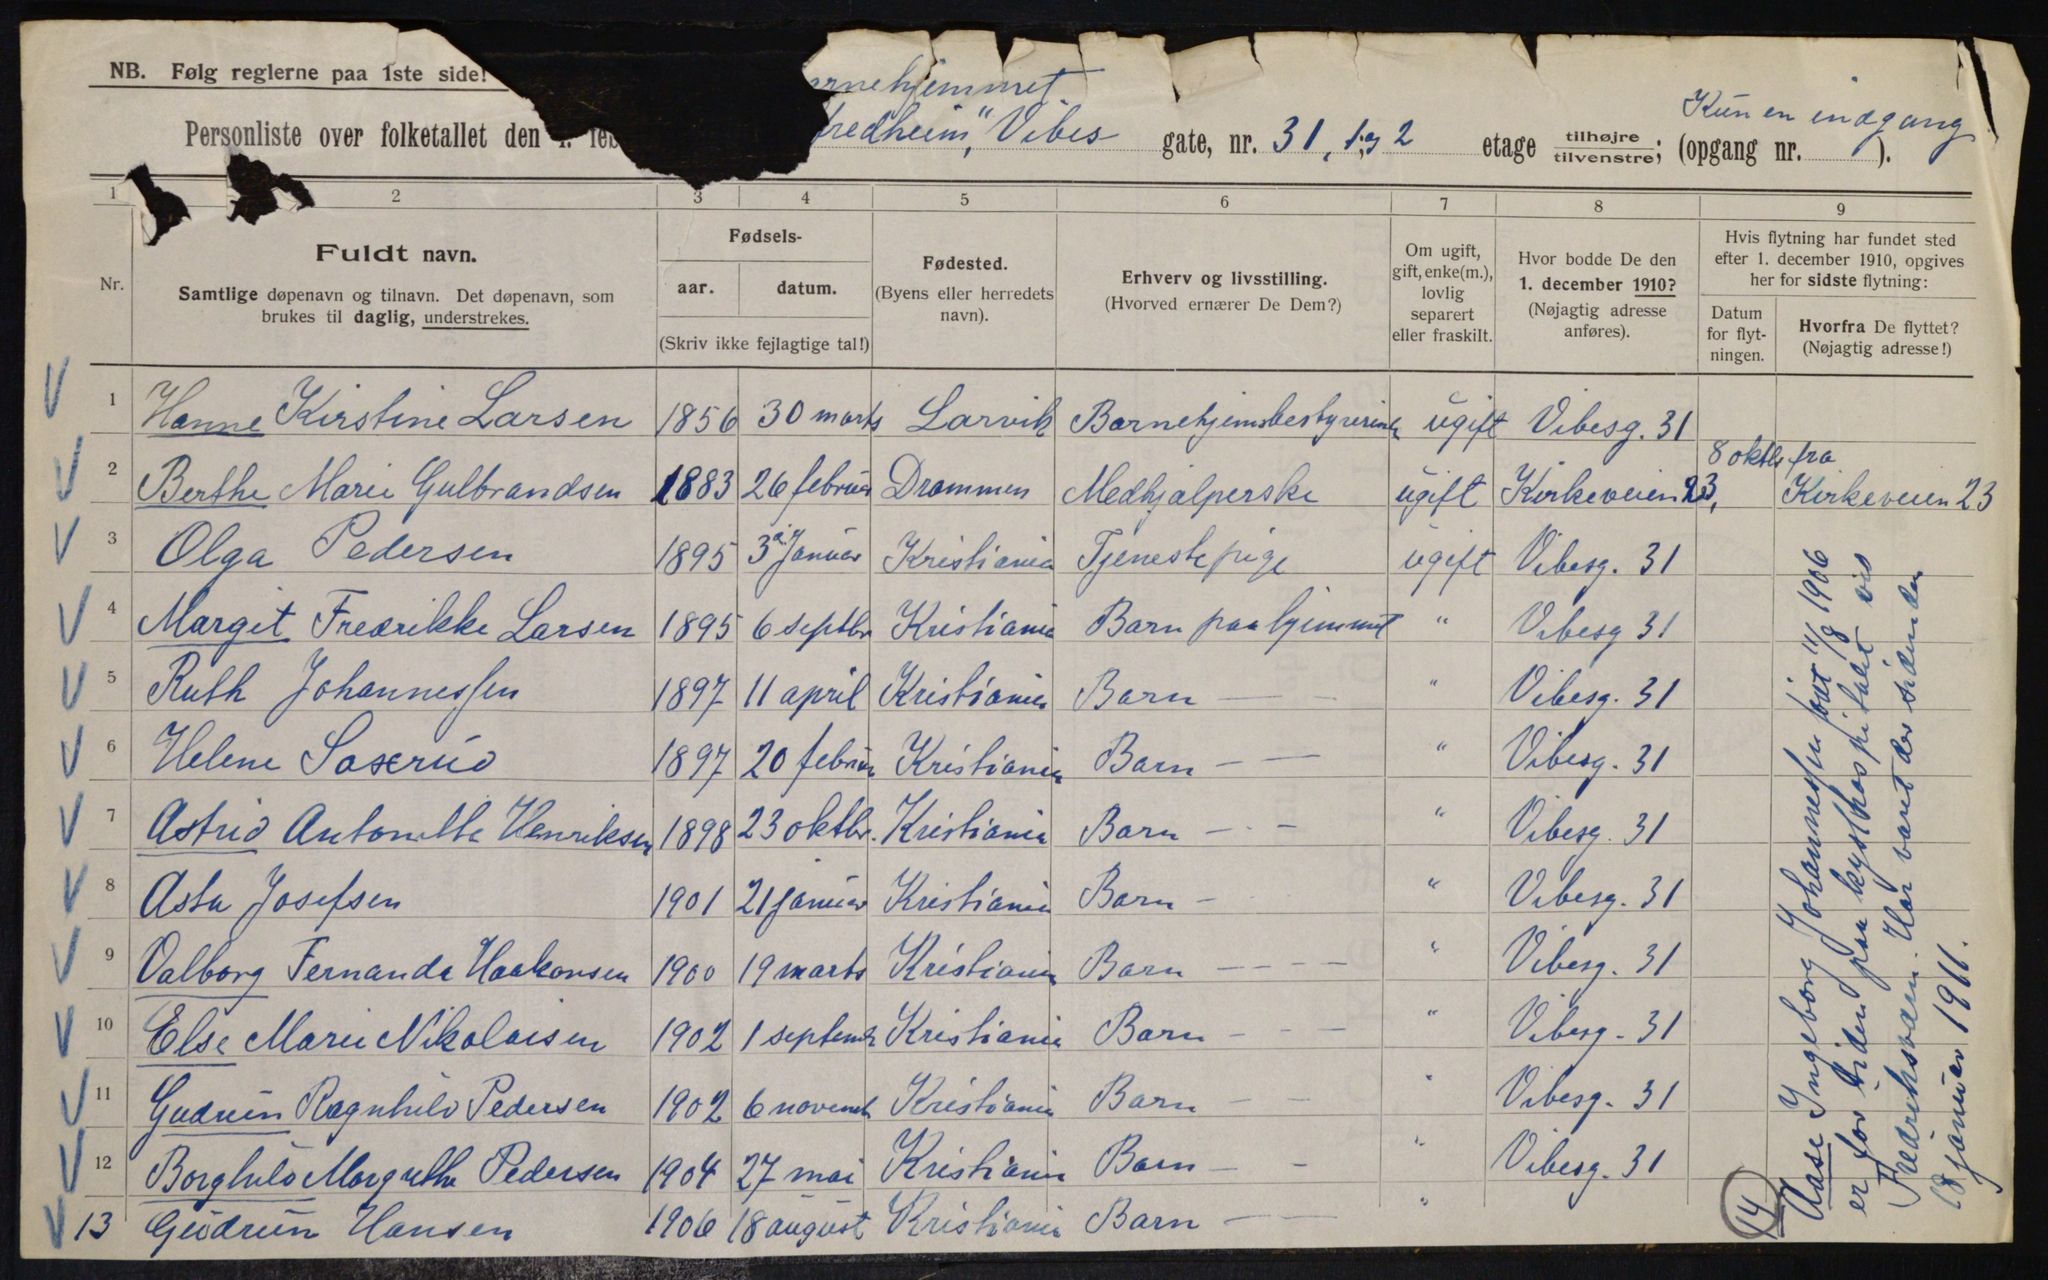 NB. Følg reglerne paa 1ste side!
rnehjemmet
Kun en indgang
Personliste over folketallet den 1. fredheim", Vibes gate, nr. 31, 1 og 2 etage tilhøjre/tilvenstre; (opgang nr. ).
1 2 3 4 5 6 7 8 9
Nr.
Fuldt navn.
Samtlige døpenavn og tilnavn. Det døpenavn, som
brukes til daglig, understrekes.
Fødsels-
aar. datum.
(Skriv ikke fejlagtige tal!)
Fødested.
(Byens eller herredets
navn).
Erhverv og livsstilling.
(Hvorved ernærer De Dem?)
Om ugift,
gift, enke(m.),
lovlig
separert
eller fraskilt.
Hvor bodde De den
1. december 1910?
(Nøjagtig adresse
anføres).
Hvis flytning har fundet sted
efter 1. december 1910, opgives
her for sidste flytning:
Datum
for flyt-
ningen.
Hvorfra De flyttet?
(Nøjagtig adresse!)
1 Hanne Kirstine Larsen 1856 30 marts Larvik Barnehjemsbestyrerinde ugift Vibesg. 31
2 Berthe Marie Gulbrandsen 1883 26 februar Drammen Medhjælperske ugift Kirkeveien 23, 8 oktbr fra Kirkeveien 23
3 Olga Pedersen 1895 3 januar Kristiania Tjenestepige ugift Vibesg. 31
4 Margit Fredrikke Larsen 1895 6 septbr Kristiania Barn paa hjemmet " Vibesg 31
5 Ruth Johannessen 1897 11 april Kristiania Barn — — " Vibesg. 31
6 Helene Saxerud 1897 20 februar Kristiania Barn — — " Vibesg. 31
7 Astrid Antonette Henriksen 1898 23 oktbr. Kristiania Barn - - " Vibesg. 31
8 Asta Josefsen 1901 21 januar Kristiania Barn - " Vibesg. 31
9 Valborg Fernanda Haakonsen 1900 19 marts Kristiania Barn - - - - " Vibesg. 31
10 Else Marie Nikolaisen 1902 1 septembr Kristiania Barn - - - " Vibesg. 31
11 Gudrun Ragnhild Pedersen 1902 6 novembr Kristiania Barn - - " Vibesg. 31
12 Borghild Margrethe Pedersen 1904 27 mai Kristiania Barn - - " Vibesg. 31
13 Gudrun Hansen 1906 18 august Kristiania Barn — — "
14 Aase Ingeborg Johannessen født 11/8 1906
er for tiden paa kysthospitalet ved
Fredriksværn. Har været der siden den
18 januar 1911.